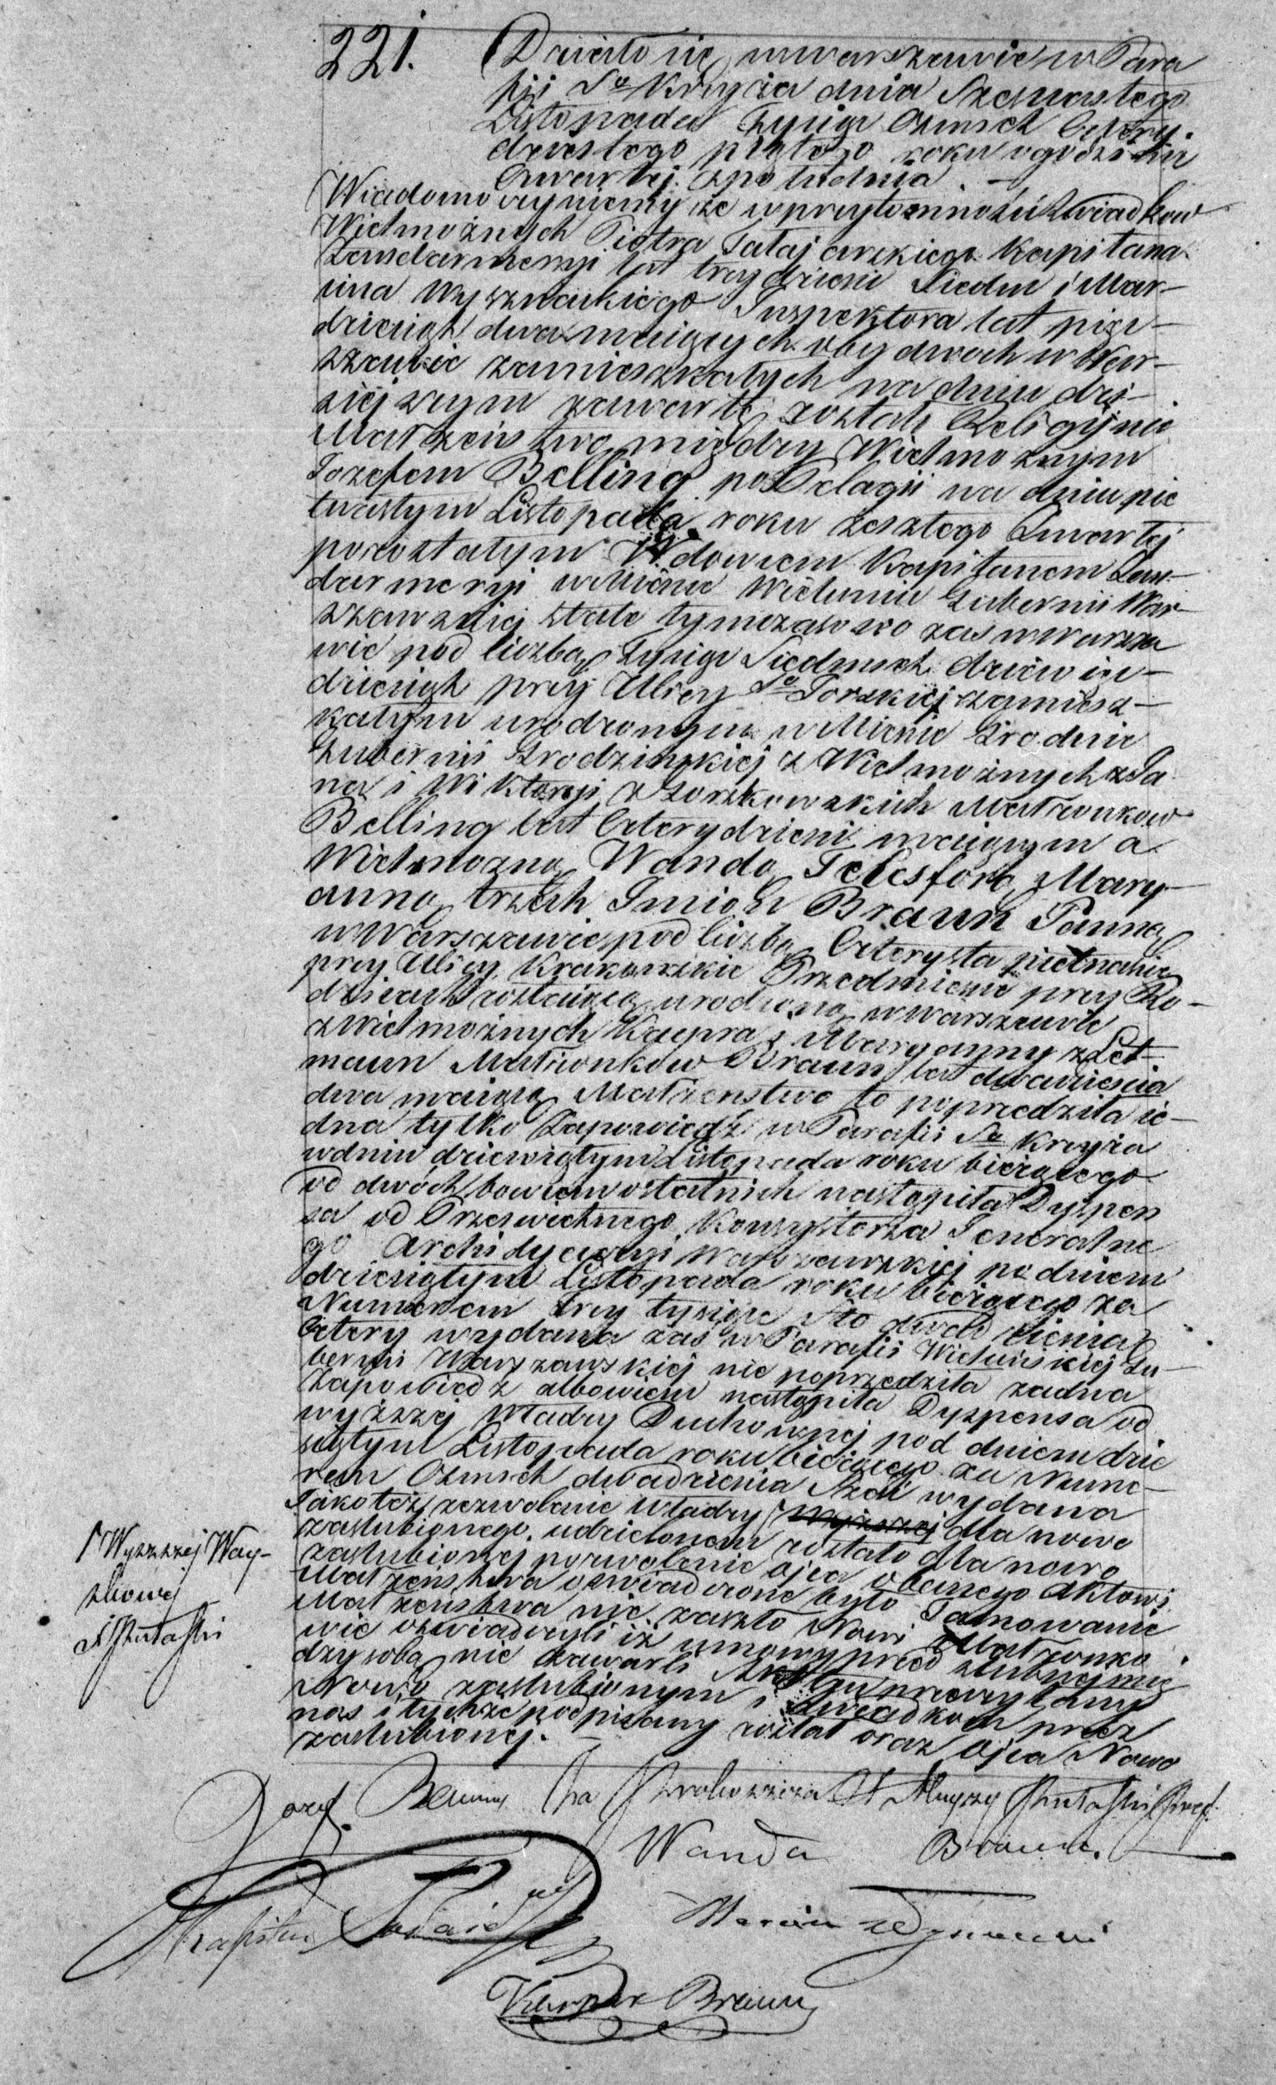 221. Działo się w Warszawie w Para
fii Sgo Krzyża dnia Szesnastego
Listopada Tysiąc Ośmset Cztery-
dziestego piątego roku o godzinie
Czwartej z południa. —
Wiadomo czyniemy że w przytomności Świadków
Wielmożnych Piotra Kapitana
Żandarmeryi lat trzydzieści Siedm i Mar-
cina Inspektora lat pięć-
dziesiąt dwa maiących obydwóch w War-
szawie zamieszkałych na dniu dzi-
siejszym zawarte zostało Religijne
Małżeństwo między Wielmożnym
Jozefem Belling po Pelagii na dniu pię
tnastym Listopada roku zeszłego zmarłej
pozostałym Wdowcem Kapitanem Żan-
darmeryi w Mieście Wieluniu Gubernii War
szawskiej stale tymczasowo zaś w Warsza
wie pod liczbą Tysiąc Siedmset dziewięć-
dziesiąt przy Ulicy Sto Jerskiej zamiesz-
kałym urodzonym w Mieście Grodnie
Gubernii Grodzińskiej z Wielmożnych Ja
na i Wiktoryi z Małżonków
Belling lat Czterydzieści maiącym a
Wielmożną Wandą Telesforą Mary-
anną trzech Imion Braun Panną
w Warszawie pod liczbą Czterysta piętnaście
przy Ulicy Krakowskie Przedmieście przy Ro-
dzicach zostaiącą urodzoną w Warszawie
z Wielmożnych Kacpra i Maryanny z Let-
mann Małżonków Braun lat dwadzieścia
dwa maiącą Małżeństwo to poprzedziła ie-
dna tylko Zapowiedź w Parafii Sgo Krzyża
w dniu dziewiątym Listopada roku bieżącego
od dwóch bowiem ostatnich nastąpiła Dyspen
sa od Prześwietnego Konsystorza Jeneralne
go Archidyecezyi Warszawskiej pod dniem
dziesiątym Listopada roku bieżącego za
Numerem trzy tysiące Sto dwadzieścia
cztery wydana zaś w Parafii Wieluńskiej Gu-
bernii Warszawskiej nie poprzedziła żadna
Zapowiedź albowiem nastąpiła Dyspensa od
wyższej Władzy Duchownej pod dniem dzie
siątym Listopada roku bieżącego za Nume-
rem Ośmset dwadzieścia Sześć wydana
Jakoteż zezwolenie Władzy Wyższej dla nowo
zaślubionego udzielonem zostało dla nowo
zaślubionej pozwolenie ojca obecnego Aktowi
Małżeństwa oświadczone było Tamowanie
Małżeństwa nie zaszło Nowi Małżonko
wie oświadczyli iż umowy przed ślubnej mię
dzy sobą nie zawarli Akt ten przeczytany
Nowo zaślubionym i Świadkom przez
nas i tychże podpisany został oraz Ojca Nowo
zaślubionej. —
Wyższej Woy-
skowej
Jozef Belling Za Proboszcza
Wanda Braun.
Kapitan
Marcin
Kacper Braun